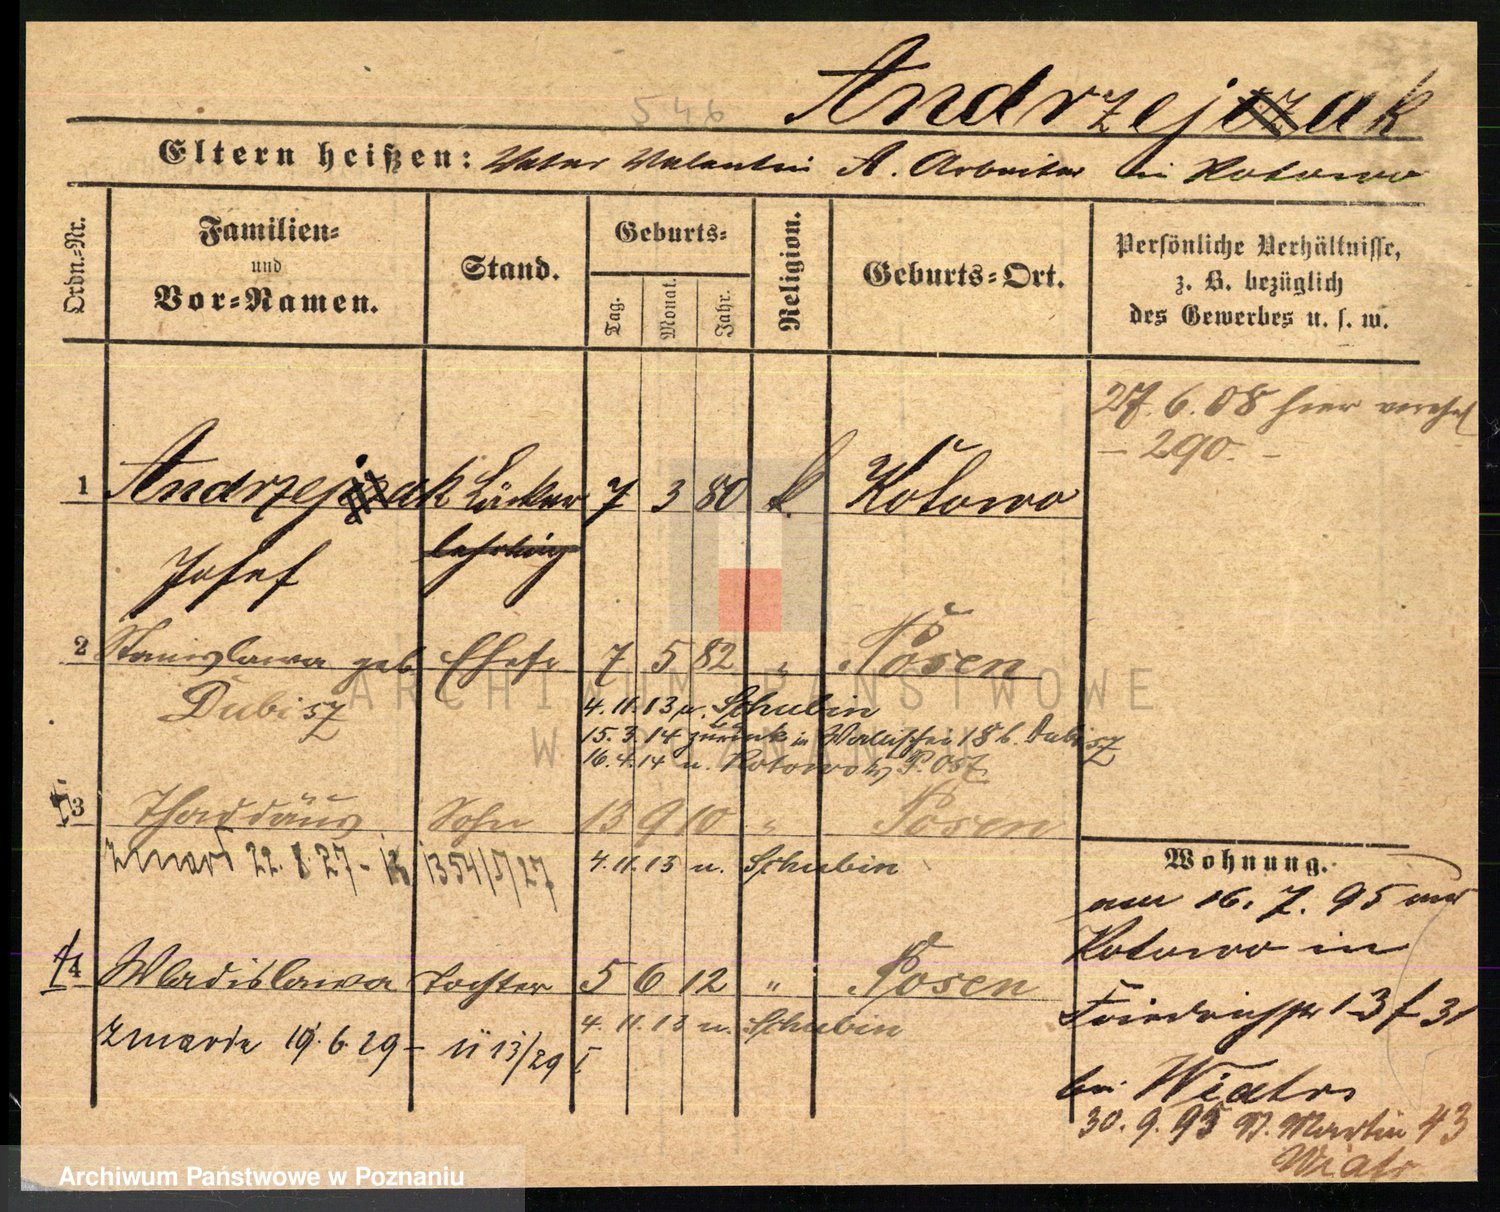 546
Andrzejczak
Eltern heißen: Vater Valentin A. Arbeiter in Kotowo
Ordn.-Nr.
Familien-
und
Vor-Namen.
Stand.
Geburts-
Tag.
Monat.
Jahr.
Religion.
Geburts-Ort.
Persönliche Verhältnisse,
z. B. bezüglich
des Gewerbes u. s. w.
27. 6. 08 hier vereh
– 290. –
1 Andrzejczak Bäcker 7 3 80 k. Kotowo
Josef lehrling
2 Stanislawa geb Ehefr 7 5 82 " Posen
Dubisz
4.11.13 n. Schubin
15.3.14 zurück in Wallischei 18 b. Dubisz
16.4.14 n. Kotowo Kr P. Ost
3 Thaddäus Sohn 13 9 10 " Posen
zmarł 22. 8. 27 – 1354/V/27
4.11.13 n. Schubin
4 Wladislawa Tochter 5 6 12 " Posen
4.11.13 n. Schubin
zmarła 19. 6. 29 – 13/29 I
Wohnung.
am 16. 7. 95 aus
Kotowo in
Friedrichstr 13 f 31
bei Wiatr
30. 9. 95 St. Martin 43
Wiatr
ARCHIWUM PAŃSTWOWE
W POZNANIU
Archiwum Państwowe w Poznaniu